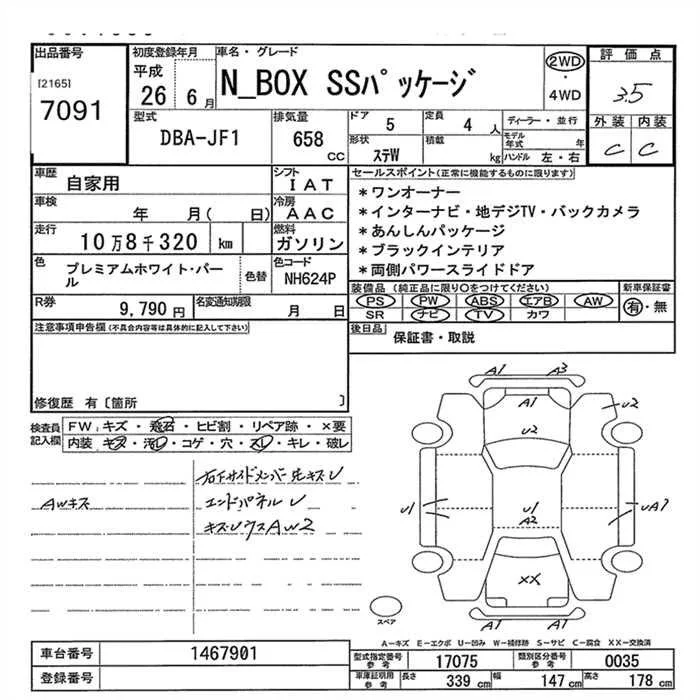 出品番号
[2165]
7091
初度登録年月
平成
26 6月
車名・グレード
N_BOX SSパッケージ
2WD
・
4WD
評価点
3.5
外装 内装
C C
型式
DBA-JF1
排気量
658
CC
ドア 5
定員 4 人
形状 ステW
積載 kg
ディーラー・並行
モデル年式 年
ハンドル 左・右
車歴 自家用
シフト IAT
車検 年 月( 日)
冷房 AAC
走行 10万8千320 km
燃料 ガソリン
色 プレミアムホワイト・パール
色替
色コード NH624P
R券 9,790円
名変通知期限 月 日
セールスポイント(正常に機能するものに限ります)
*ワンオーナー
*インターナビ・地デジTV・バックカメラ
*あんしんパッケージ
*ブラックインテリア
*両側パワースライドドア
装備品 (純正品に限り○をつけてください)
PS PW ABS エアB AW
SR ナビ TV カワ
新車保証書
有・無
後日品
保証書・取説
注意事項申告欄(不具合内容等は具体的に記入して下さい)
修復歴 有〔箇所 〕
検査員
記入欄
FW:キズ・飛石・ヒビ割・リペア跡・×要
内装 キズ・汚レ・コゲ・穴・スレ・キレ・破レ
AWキズ
右Fサイドメンバー先キズU
エンドパネルU
キズUウスAW2
A1 A3
A1
U2
U2
U1
U1
A2
UA7
XX
A1 A1
スペア
A-キズ E-エクボ U-凹み W-補修跡 S-サビ C-腐食 XX-交換済
車台番号 1467901
登録番号
型式指定番号
参考
17075
類別区分番号
参考
0035
車庫証明用
参考
長さ 339 cm
幅 147 cm
高さ 178 cm